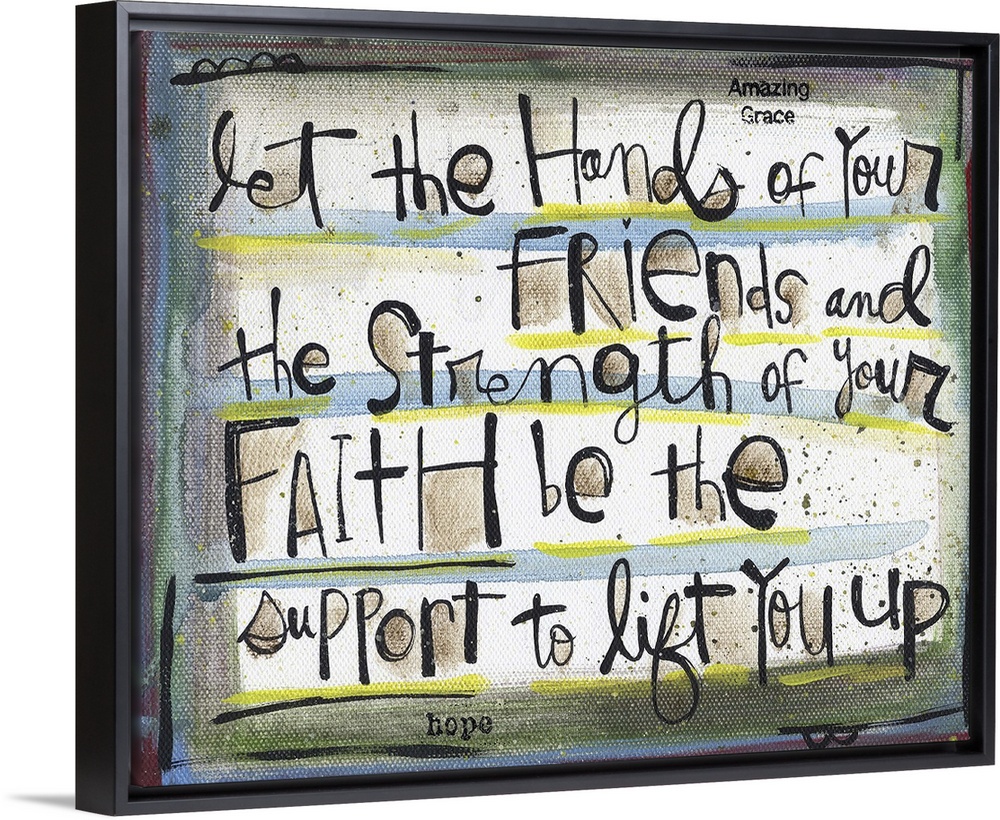 Amazing
Grace
let the Hands of Your
FRiEnds and
the Strength of Your
FAITH be the
support to lift You up
hope